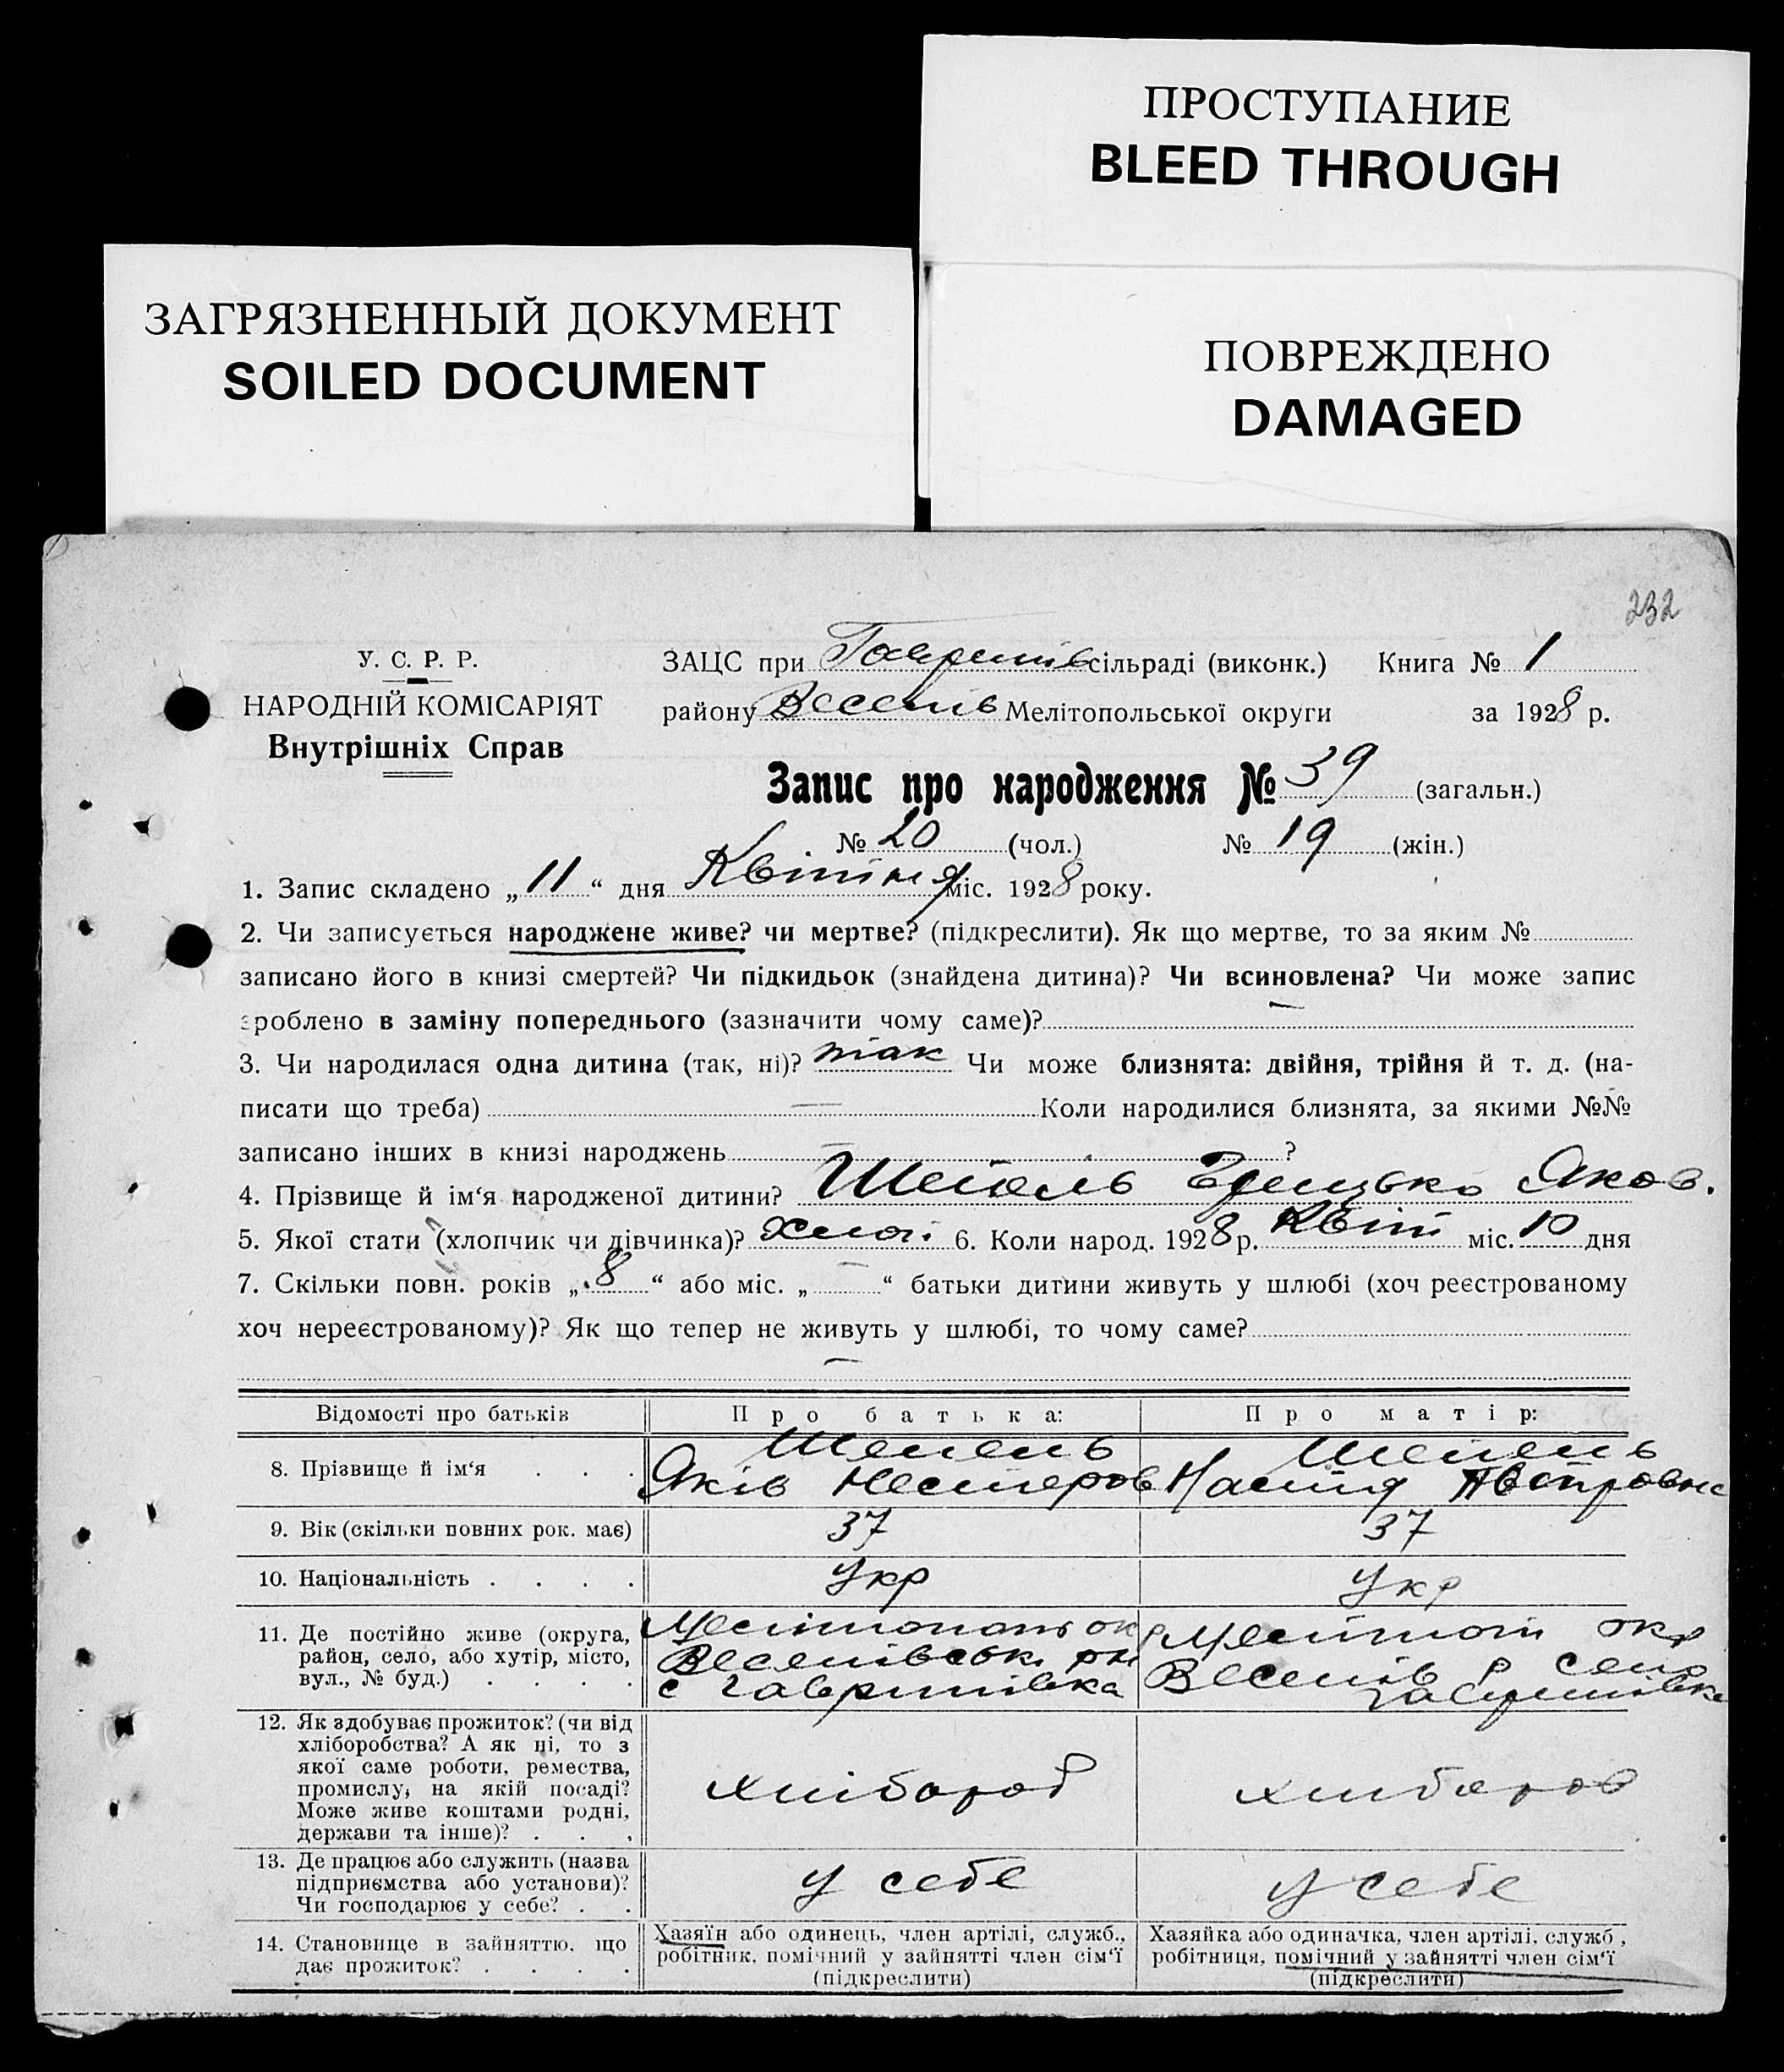 ПРОСТУПАНИЕ
BLEED THROUGH
ЗАГРЯЗНЕННЫЙ ДОКУМЕНТ
SOILED DOCUMENT
ПОВРЕЖДЕНО
DAMAGED
232
У. С. Р. Р.
НАРОДНІЙ КОМІСАРІЯТ
Внутрішніх Справ
ЗАЦС при Гаврилів сільраді (виконк.) Книга № 1
району Веселів Мелітопольської округи за 1928 р.
Запис про народження № 39 (загальн.)
№ 20 (чол.) № 19 (жін.)
1. Запис складено „ 11 “ дня Квітня міс. 1928 року.
2. Чи записується народжене живе? чи мертве? (підкреслити). Як що мертве, то за яким №
записано його в книзі смертей? Чи підкидьок (знайдена дитина)? Чи всиновлена? Чи може запис
зроблено в заміну попереднього (зазначити чому саме)?
3. Чи народилася одна дитина (так, ні)? так Чи може близнята: двійня, трійня й т. д. (на-
писати що треба) — Коли народилися близнята, за якими №№
записано інших в книзі народжень — ?
4. Прізвище й ім‘я народженої дитини? Яков.
5. Якої стати (хлопчик чи дівчинка)? хлоп. 6. Коли народ. 1928 р. Квіт міс. 10 дня
7. Скільки повн. років „ 8 “ або міс. „ — “ батьки дитини живуть у шлюбі (хоч реєстрованому
хоч нереєстрованому)? Як що тепер не живуть у шлюбі, то чому саме?
—
Відомості про батьків Про батька: Про матір:
8. Прізвище й ім‘я . . .
Шепель
Яків Нестеров
Шепель
Настя
9. Вік (скільки повних рок. має) 37 37
10. Національність . . . . Укр Укр
11. Де постійно живе (округа,
район, село, або хутір, місто,
вул., № буд.) . . . .
Мелітополь ок
Веселівськ рн
с Гаврилівка
Мелітоп окр
Веселів р село
Гаврилівка
12. Як здобуває прожиток? (чи від
хліборобства? А як ні, то з
якої саме роботи, ремества,
промислу, на якій посаді?
Може живе коштами родні,
держави та інше)? . . .
хлібороб
хлібороб
13. Де працює або служить (назва
підприємства або установи)?
Чи господарює у себе? . .
у себе
у себе
14. Становище в зайняттю, що
дає прожиток? . . . .
Хазяїн або одинець, член артілі, служб.,
робітник, помічний у зайнятті член сім‘ї
(підкреслити)
Хазяйка або одиначка, член артілі, служб.,
робітниця, помічний у зайнятті член сім‘ї
(підкреслити)